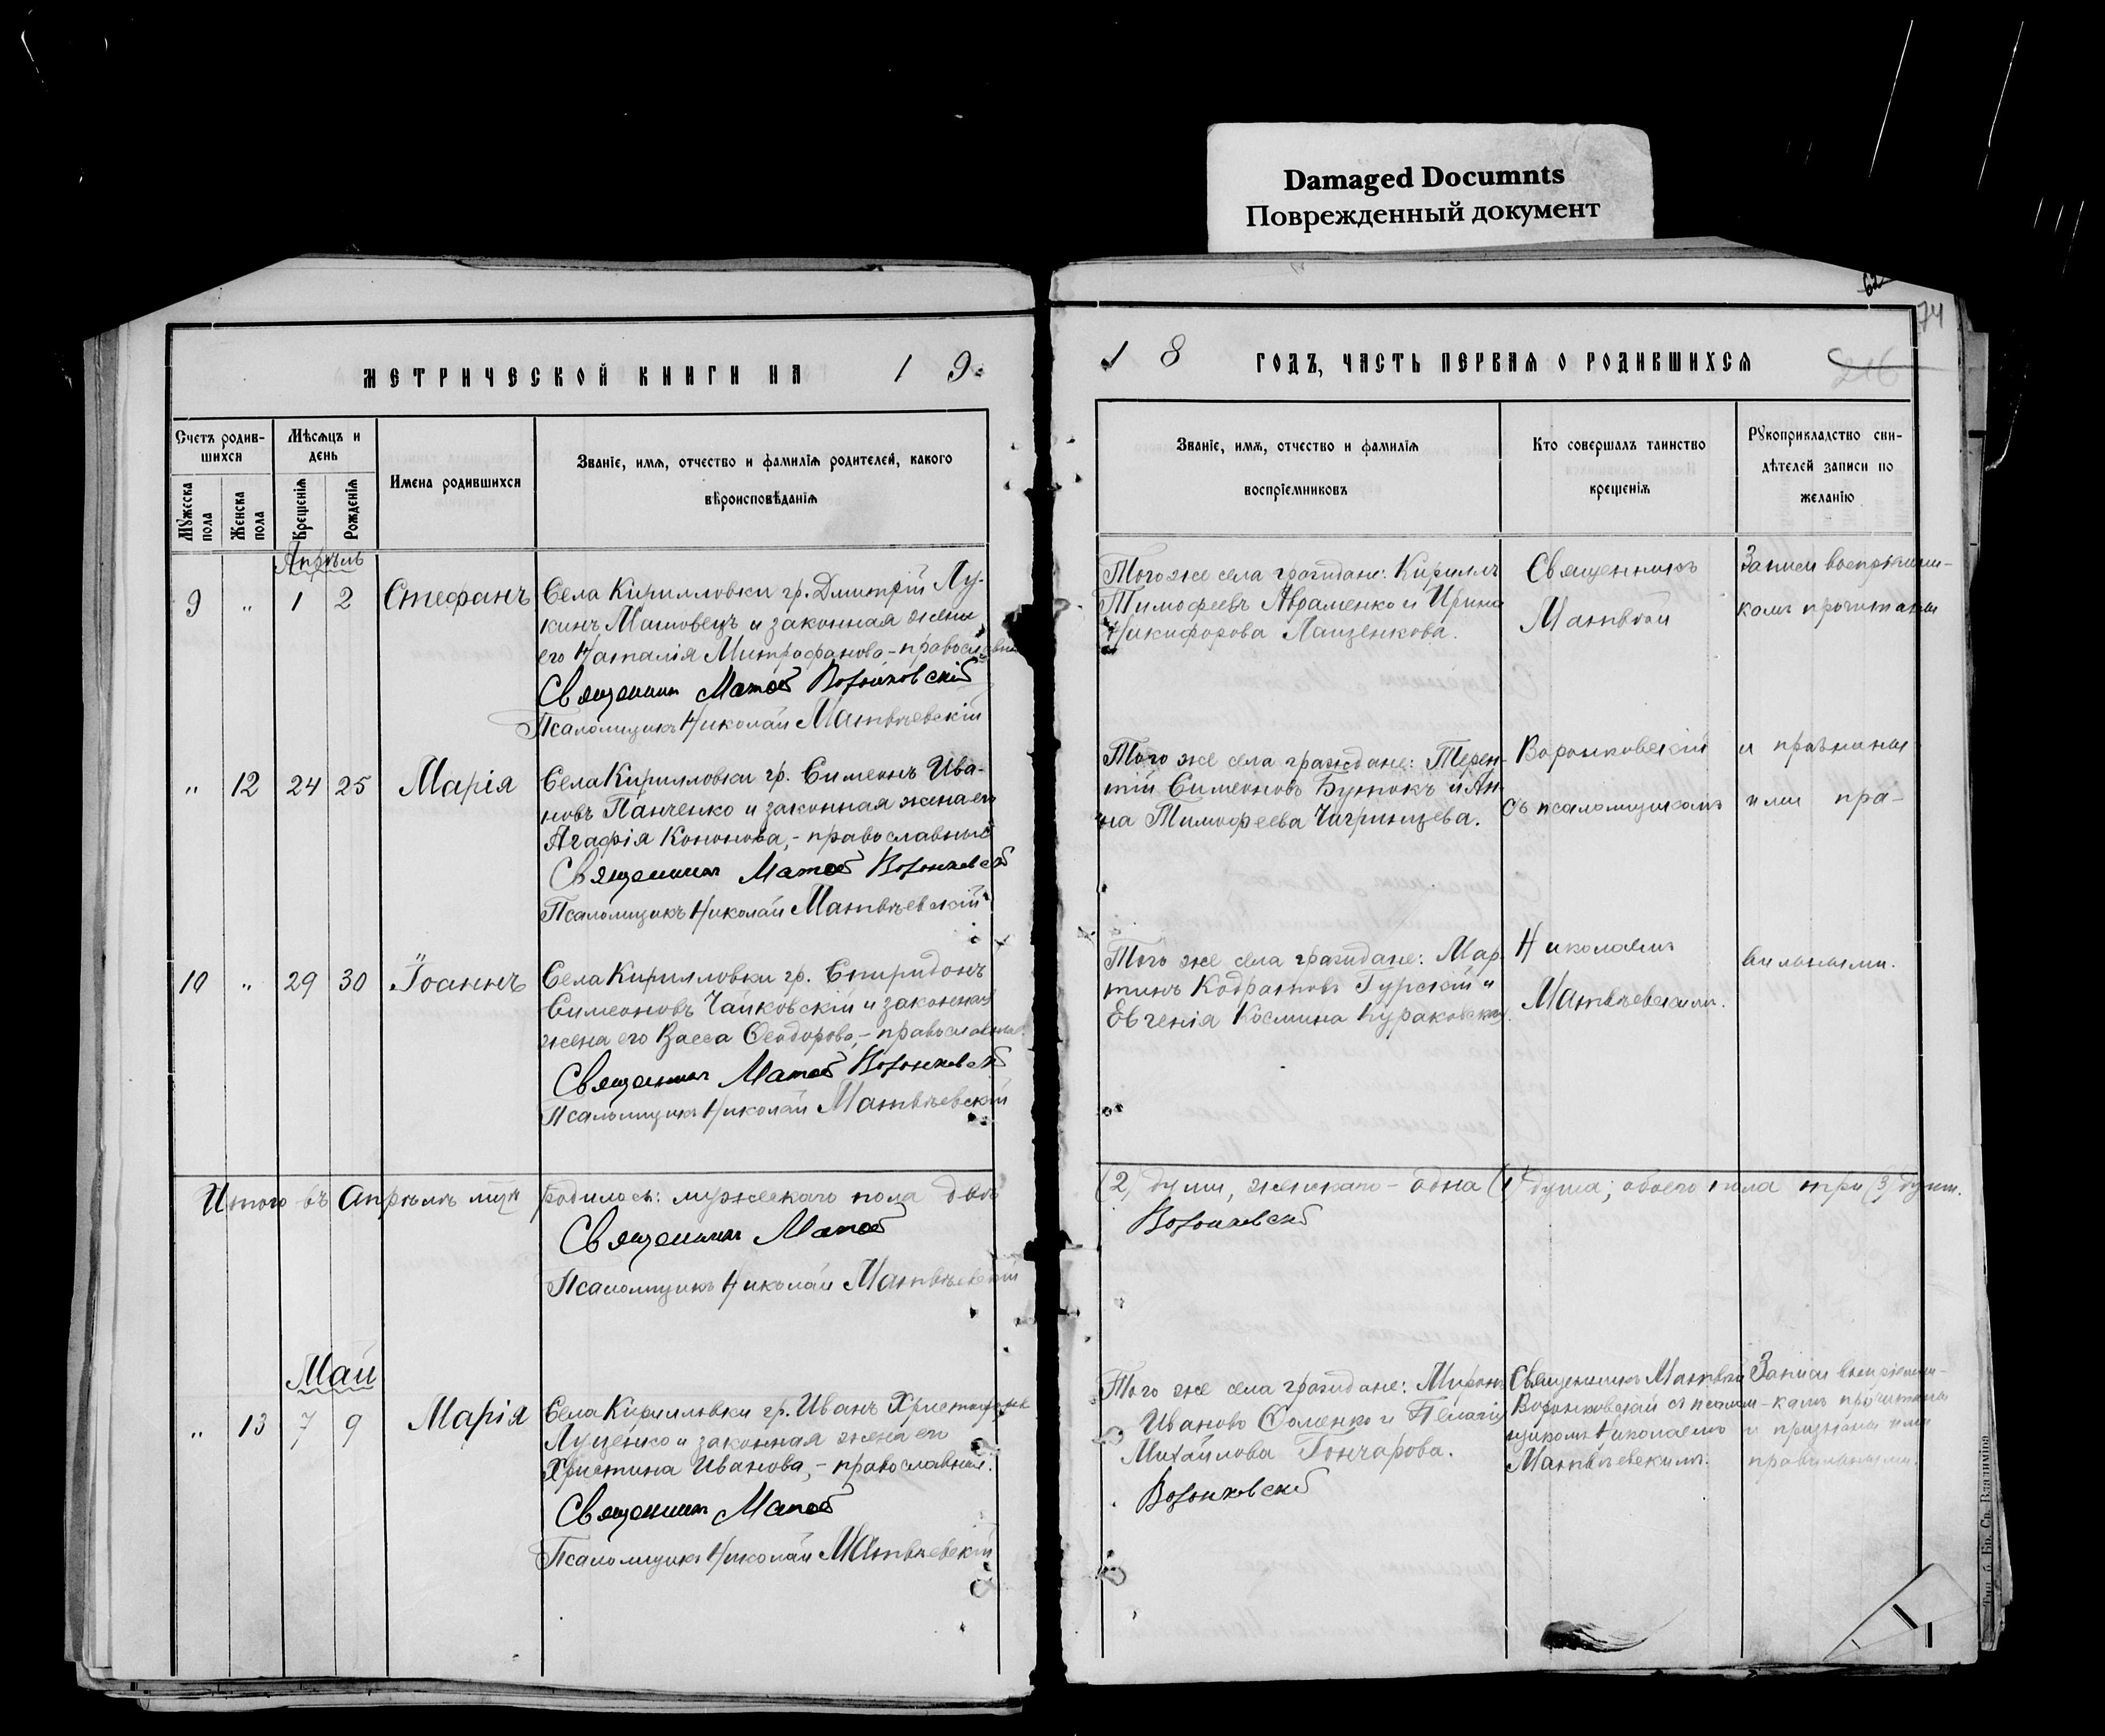 Damaged Documnts
Поврежденный документ
74
216
МЕТРИЧЕСКОЙ КНИГИ НА 1 9
1 8 ГОДЪ, ЧАСТЬ ПЕРВАЯ О РОДИВШИХСЯ
Счетъ родив-
шихся
Мужеска
пола
Женска
пола
Мѣсяцъ и
день
Крещенія
Рожденія
Имена родившихся
Званіе, имя, отчество и фамилія родителей, какого
вѣроисповѣданія
Званіе, имя, отчество и фамилія
воспріемниковъ
Кто совершалъ таинство
крещенія
Рукоприкладство сви-
дѣтелей записи по
желанію
Апрѣль
9 „ 1 2 Стефанъ
Села Кирилловки гр. Дмитрій Лу-
кинъ Маловецъ и законная жена
его Наталія Митрофанова,- православные
Священникъ Матвей Воронковский
Псаломщикъ Николай Матвѣевскій
Того же села граждане: Кириллъ
Тимофеевъ Авраменко и Ирина
Никифорова Лащенкова.
Священникъ
Матвѣй
Записи воспріемни-
камъ прочитаны
„ 12 24 25 Марія
Села Кирилловки гр. Симеонъ Ива-
новъ Панченко и законная жена его
Агафія Кононова,- православные
Священникъ Матвей Воронковский
Псаломщикъ Николай Матвѣевскій
Того же села граждане: Терен-
тій Симеоновъ Бунокъ и Ан-
на Тимофеева Чигринцева.
Воронковскій
съ псаломщикомъ
и признаны
ими пра-
10 „ 29 30 Іоаннъ
Села Кирилловки гр. Спиридонъ
Симеоновъ Чайковскій и законная
жена его Васса Ѳеодорова,- православные
Священникъ Матвей Воронковский
Псаломщикъ Николай Матвѣевскій
Того же села граждане: Мар-
тинъ Кодратовъ Гурскій и
Евгенія Космина Кураковская.
Николаемъ
Матвѣевскимъ.
вильными.
Итого въ Апрѣлѣ мцѣ родилось: мужескаго пола двѣ (2) души, женскаго - одна (1) душа; обоего пола три (3) души.
Священникъ Матвей Воронковский
Псаломщикъ Николай Матвѣевскій
Май
„ 13 7 9 Марія
Села Кирилловки гр. Иванъ Христофоровъ
Луценко и законная жена его
Христина Иванова,- православные.
Священникъ Матвей
Псаломщикъ Николай Матвѣевскій
Того же села граждане: Миронъ
Ивановъ Соменко и Пелагія
Михайлова Гончарова.
Воронковский
Священникъ Матвѣй
Воронковскій съ псалом-
щикомъ Николаемъ
Матвѣевскимъ.
Записи воспріемни-
камъ прочитаны
и признаны ими
правильными.
Тип. б. Бр. Св. Владиміра